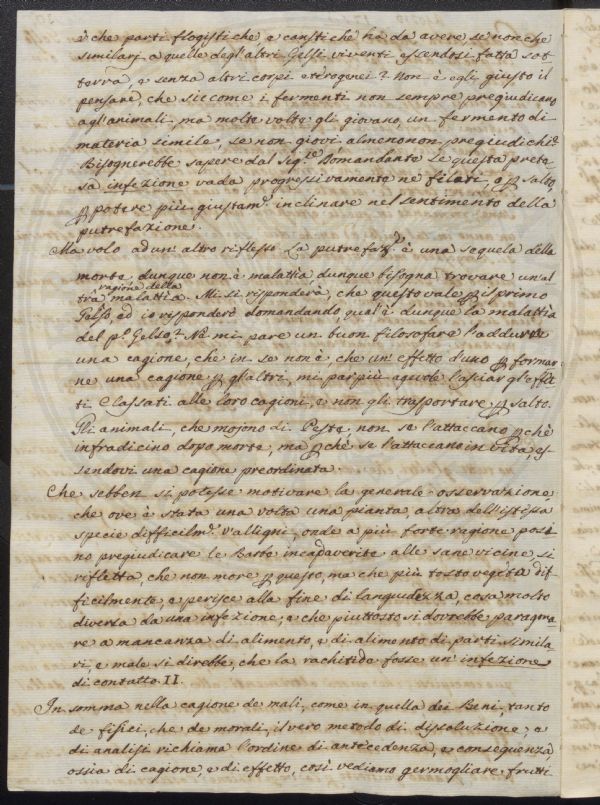 è che parti flogistiche e caustiche ha da avere se non che
similarj a quelle degl'altri Gelsi viventi essendosi fatta sot
terra, e senza altri corpi eterogenei? Non è egli giusto il
pensare, che siccome i fermenti non sempre pregiudicano
agl'animali, ma molte volte gli giovano, un fermento di
materia simile, se non giovi, almeno non pregiudichi?
Bisognerebbe sapere dal Sig.re Domandante se questa prete
sa infezione vada progressivamente ne filati, o ꝑ salto,
ꝑ potere più giustam.e inclinare nel sentimento della
putrefazione.
Ma volo ad un altro riflesso. La putrefaz.e è una sequela della
morte, dunque non è malattia dunque bisogna trovare un'al
ragione della
tra malattia. Mi si risponderà, che questo vale ꝑ il primo
Gelso, ed io risponderò domandando qual'è dunque la malattia
del p.o Gelso? Nè mi pare un buon filosofare l'addurre
una cagione, che in se non è, che un effetto d'uno ꝑ formar
ne una cagione ꝑ gl'altri, mi par più agevole lasciar gl'effet
ti classati alle loro cagioni, e non gli trasportare ꝑ salto.
Gli animali, che mojono di Peste non se l'attaccano ꝑchè
infradicino dopo morte, ma ꝑchè se l'attaccano in vita, es
sendovi una cagione preordinata.
Che sebben si potesse motivare la generale osservazione,
che ove è stata una volta una pianta altra dell'istessa
specie difficilm.e v'alligni, onde a più forte ragione possi
no pregiudicare le Barbe incadaverite alle sane vicine, si
rifletta, che non more ꝑ questo, ma che più tosto vegeta dif
ficilmente, e perisce alla fine di languidezza, cosa molto
diversa da una infezione; e che piuttosto si dovrebbe paragona
re a mancanza di alimento, e di alimento di parti simila
ri, e male si direbbe, che la rachitide fosse un'infezione
di contatto. II.
In somma nella cagione de mali, come in quella dei Beni, tanto
de fisici, che de morali, il vero metodo di dissoluzione, e
di analisi richiama l'ordine di antecedenza, e conseguenza,
ossia di cagione, e di effetto, così vediamo germogliare frutti